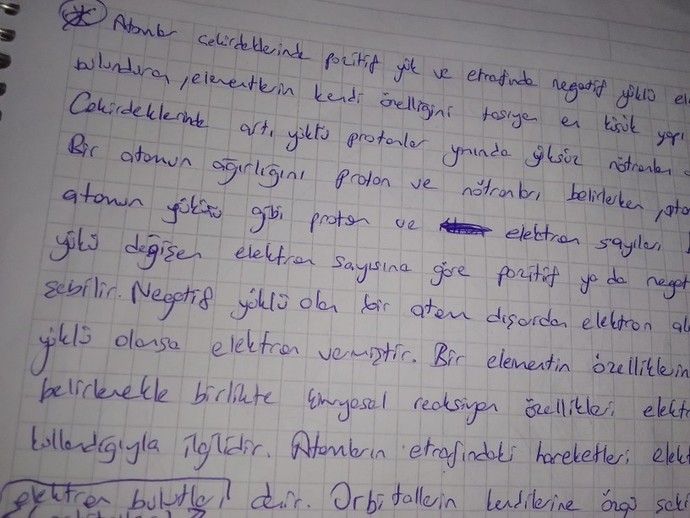 Atomlar çekirdeklerinde pozitif yük ve etrafında negatif yüklü ele
bulunduran, elementlerin kendi özelliğini taşıyan en küçük yapı
Çekirdeklerinde artı yüklü protonlar yanında yüksüz nötronları
Bir atomun ağırlığını proton ve nötronları belirlerken, ato
atomun yükünü gibi proton ve elektron sayıları
yükü değişen elektron sayısına göre pozitif ya da negat
şebilir. Negatif yüklü olan bir atom dışardan elektron al
yüklü olansa elektron vermiştir. Bir elementin özelliklerin
belirlemekle birlikte kimyasal reaksiyon özellikleri elekt
kullandığıyla ilgilidir. Atomların etrafındaki hareketleri elekt
elektron bulutları denir. Orbitallerin kendilerine özgü şekil